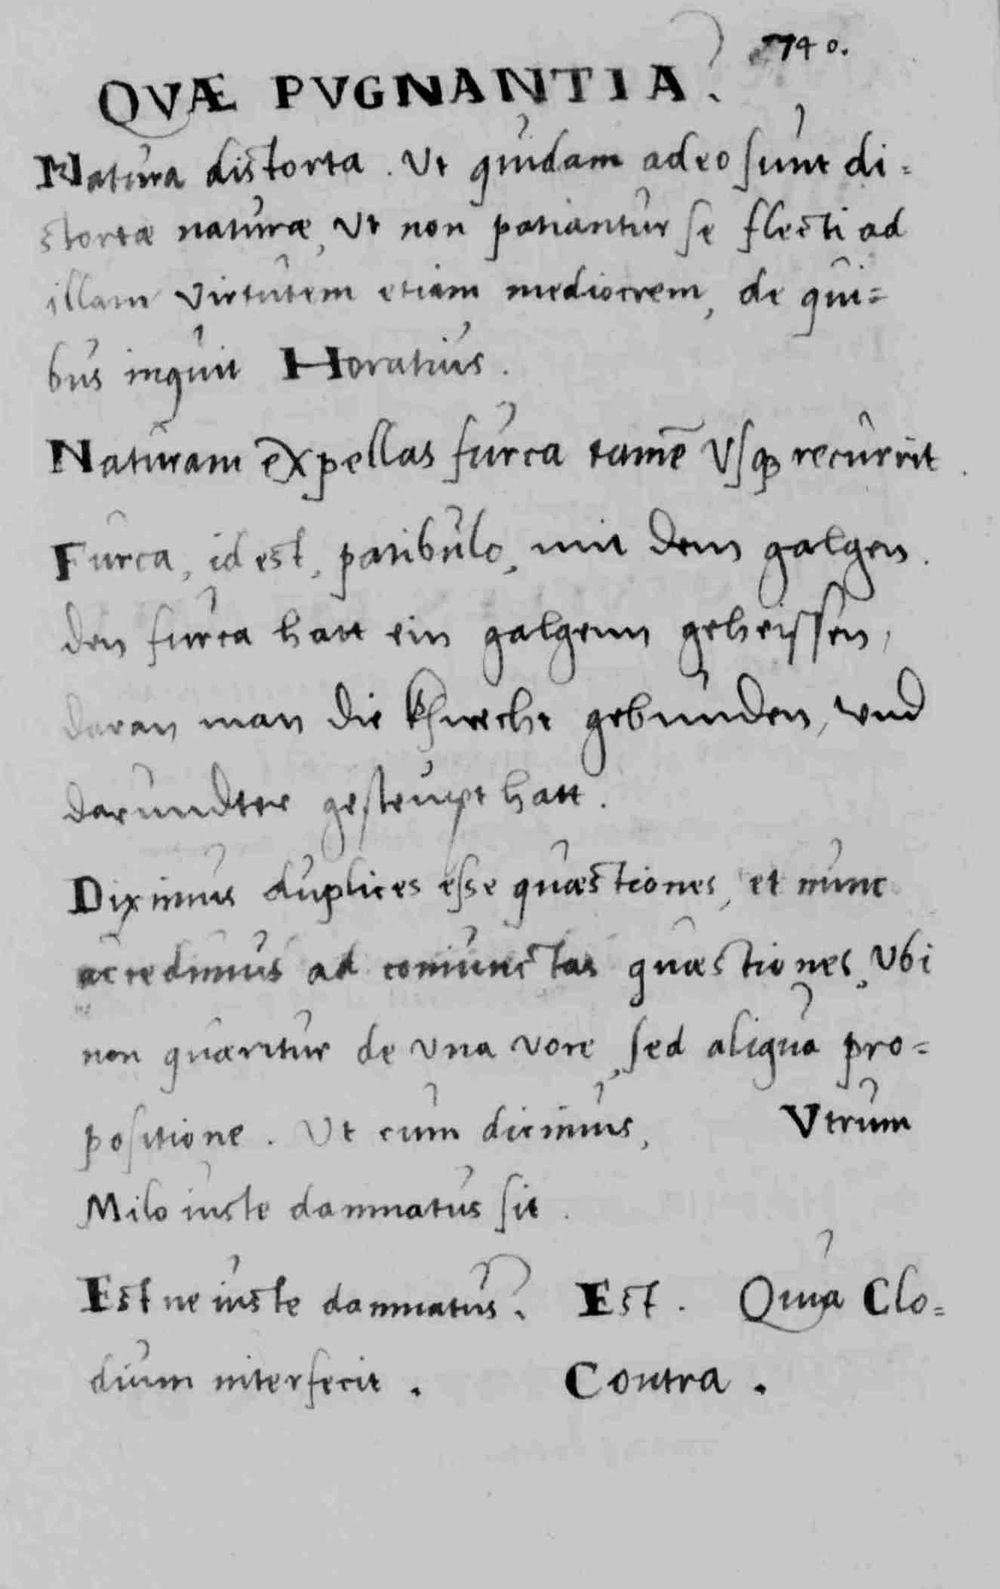 740.
QVÆ PVGNANTIA?
Natura distorta. Ut quidam adeo sunt di=
stortæ naturæ, Ut non patiantur se flecti ad
illam virtutem etiam mediocrem, de qui=
bus inquit Horatius.
Naturam expellas furca tamē Usqꝫ recurrit.
Furca, id est, patibulo, mit dem galgen.
den furca hatt ein galgenn geheissen,
daran man die khnecht gebunden, vnd
darundter gesteupt hatt.
Diximus duplices esse quæstiones, et nunc
accedimus ad coniunctas quæstiones, Ubi
non quæritur de una voce, sed aliqua pro=
positione. Ut cum dicimus, Vtrum
Milo iuste damnatus sit.
Est ne iuste damnatus? Est. Quia Clo=
dium interfecit. Contra.